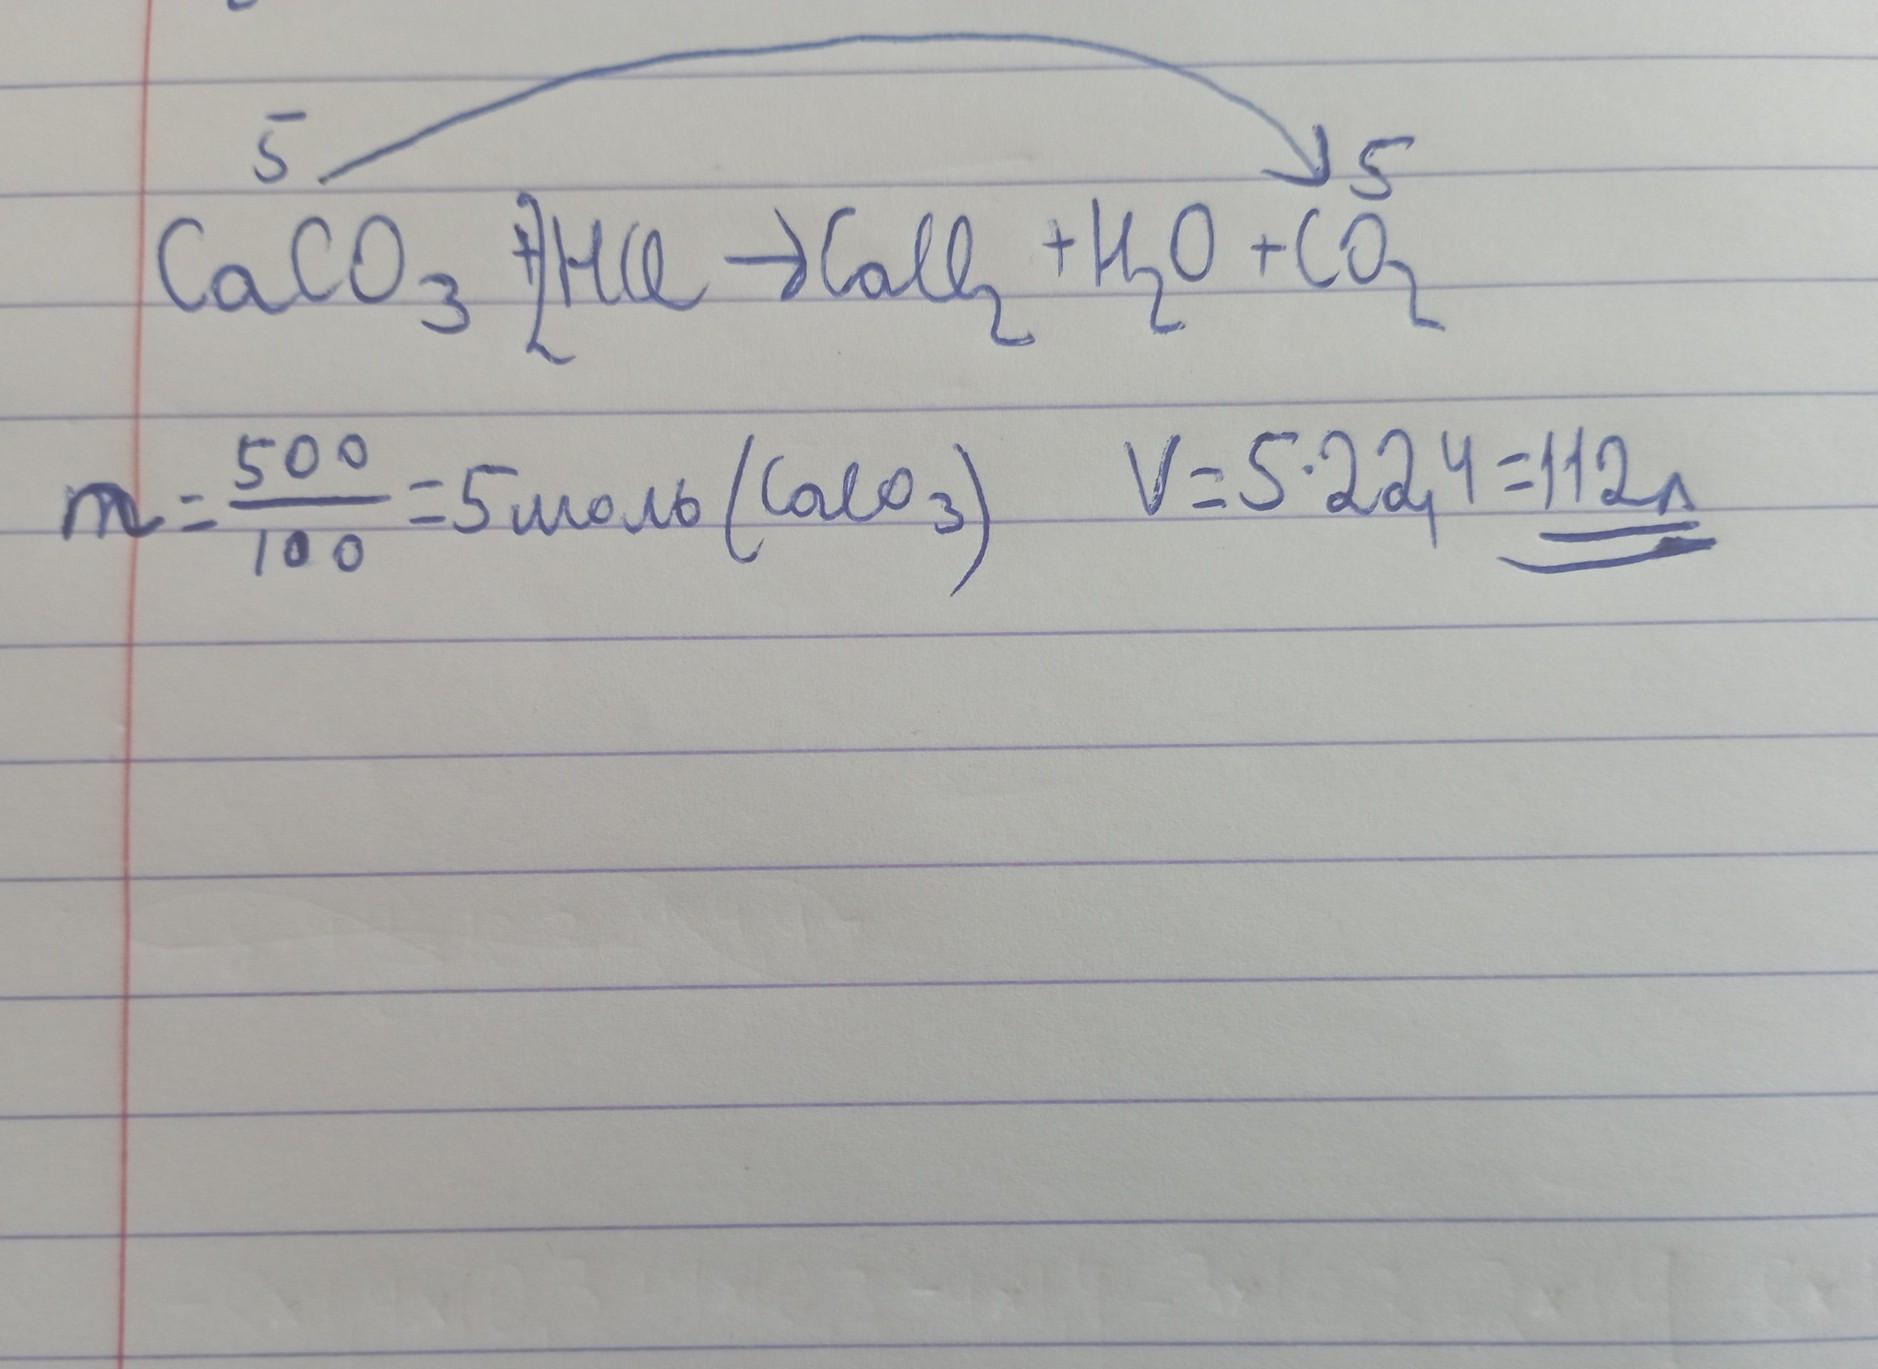 5 5
CaCO3 + 2HCl → CaCl2 + H2O + CO2
m = 500/100 = 5 моль (CaCO3) V = 5·22,4 = 112 л